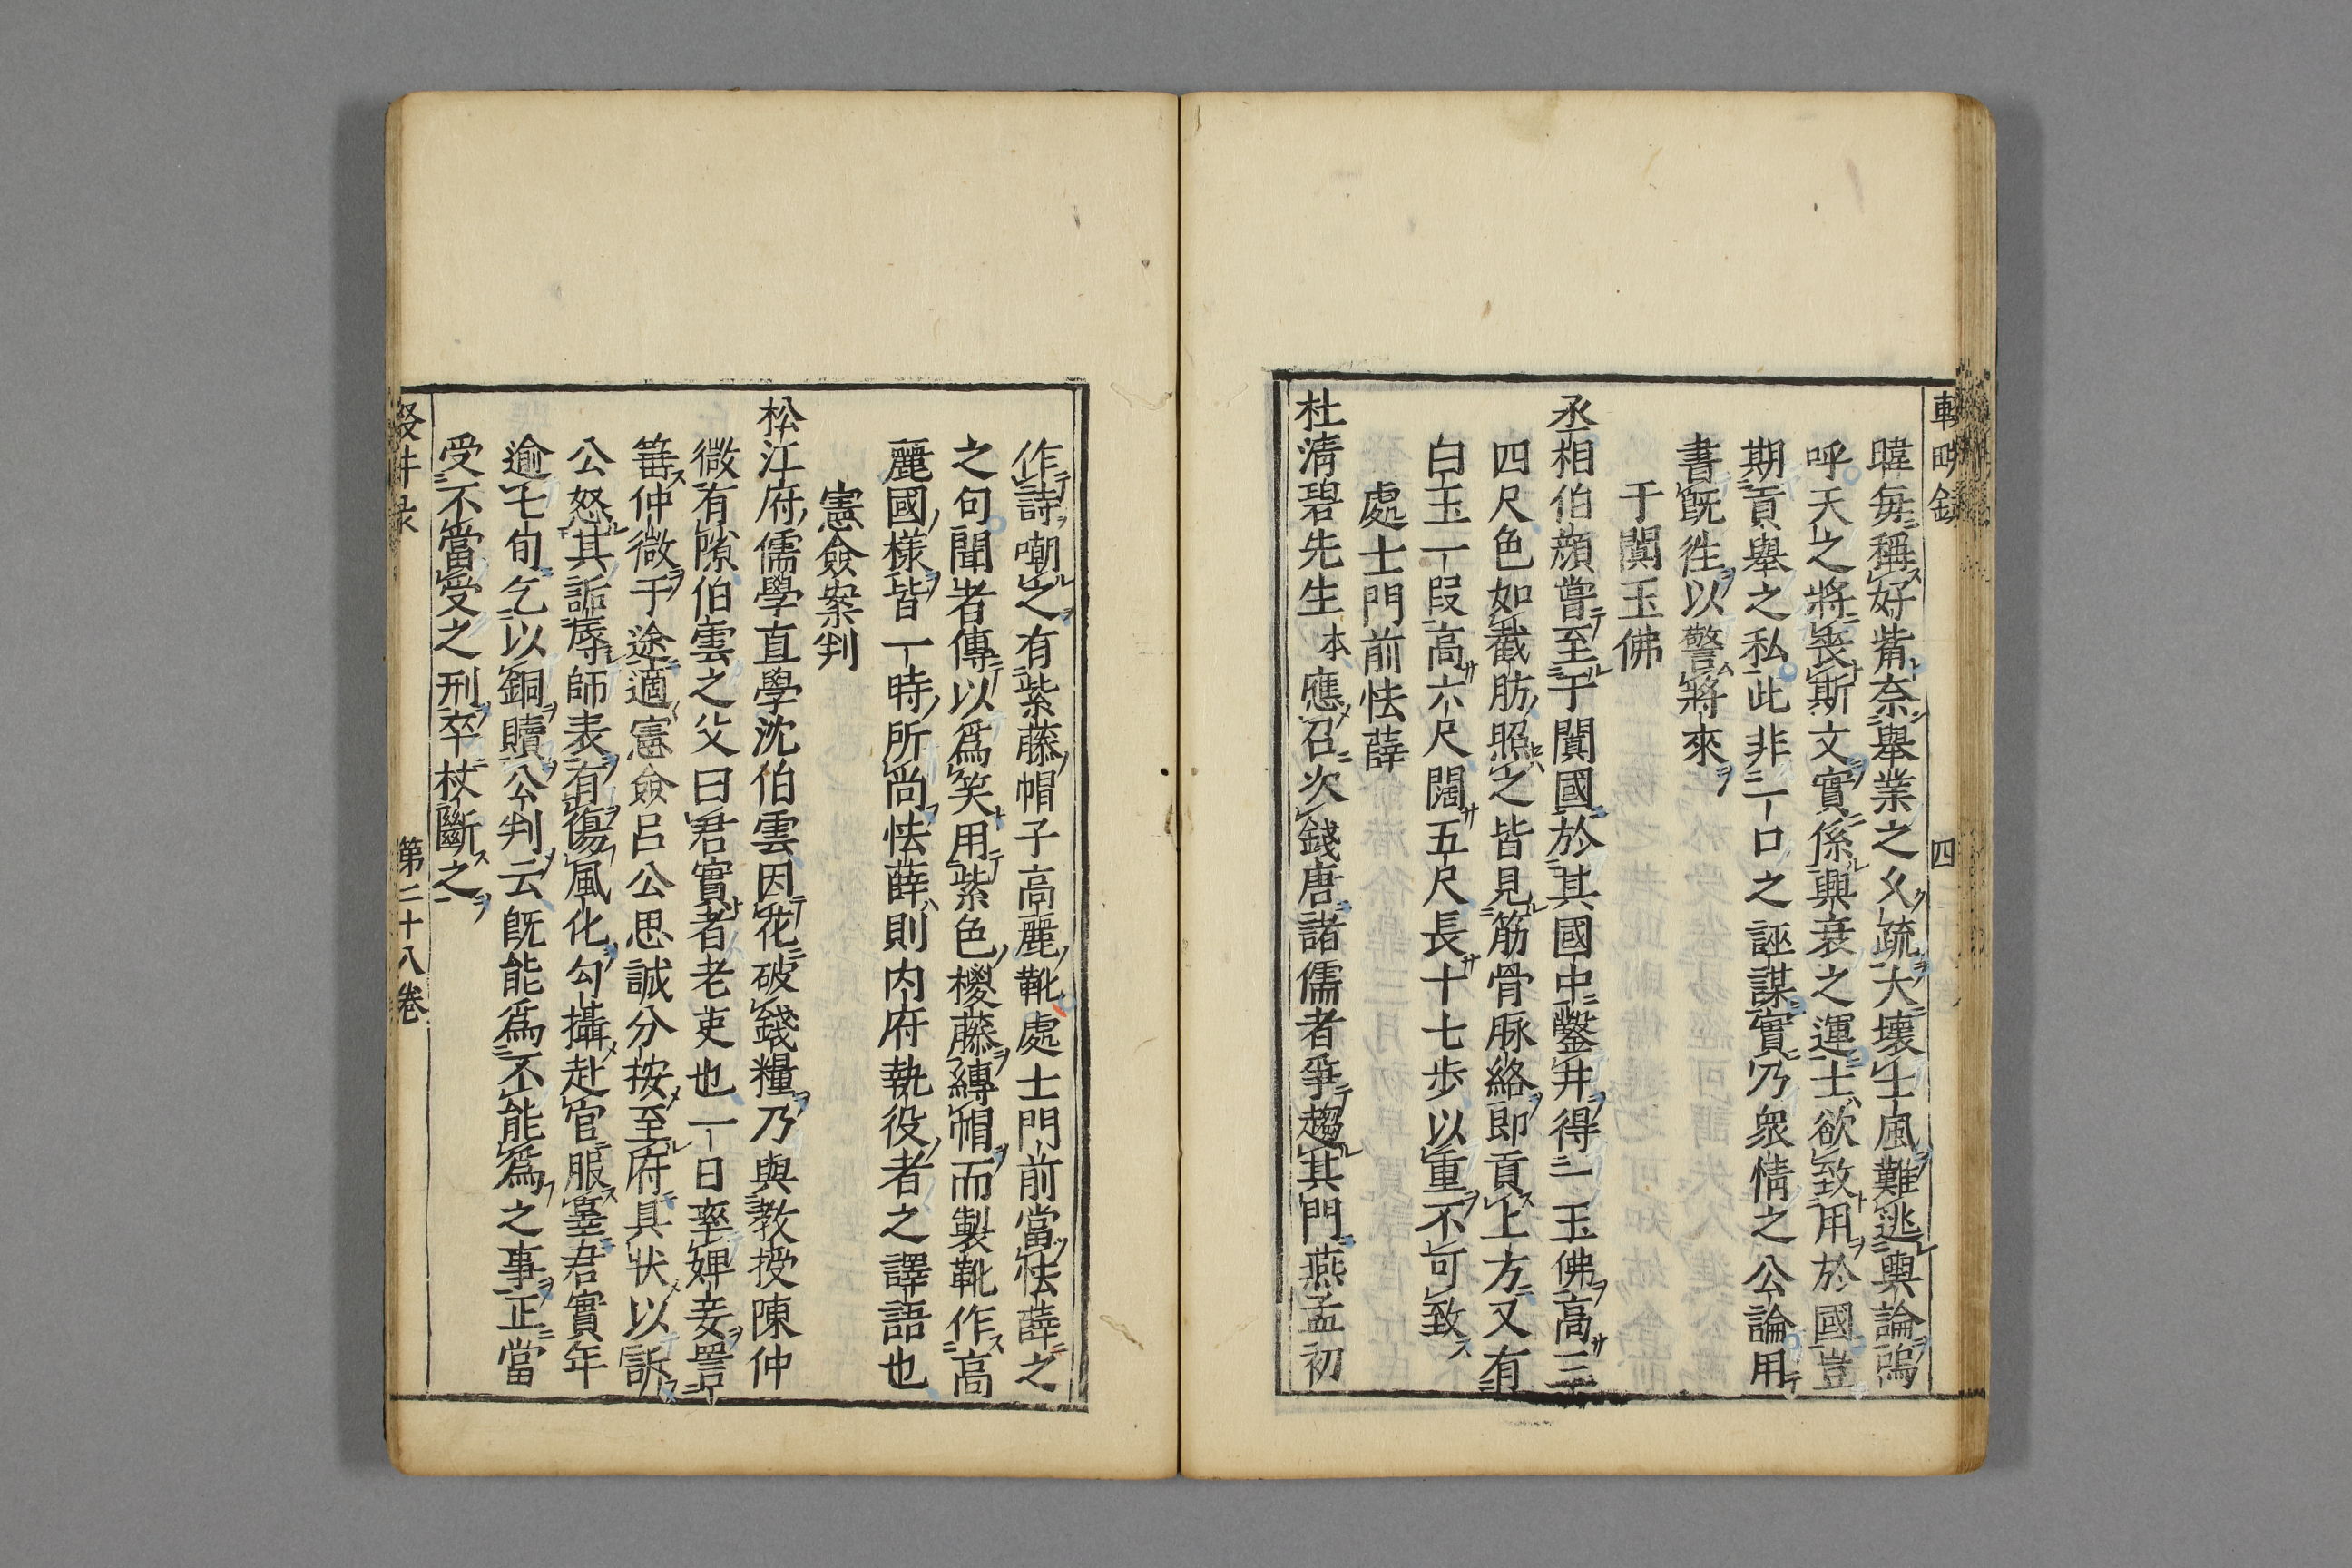 輟畊錄 四
暐每稱好觜奈舉業之久疏大壞士風難逃輿論嗚
呼天之將喪斯文實係興衰之運士欲致用於國豈
期貢舉之私此非一口之誣謀實乃衆情之公論用
書既徃以警將來
于闐玉佛
丞相伯顔嘗至于闐國於其國中鑿井得一玉佛高三
四尺色如截肪照之皆見筋骨脉絡即貢上方又有
白玉一叚高六尺闊五尺長十七步以重不可致
處士門前怯薛
杜清碧先生本應召次錢唐諸儒者爭趨其門燕孟初
作詩嘲之有紫藤帽子高麗靴處士門前當怯薛之
之句聞者傳以爲笑用紫色櫻藤縛帽而製靴作高
麗國樣皆一時所尚怯薛則内府執役者之譯語也
憲僉案判
松江府儒學直學沈伯雲因花破錢糧乃與教授陳仲
微有隙伯雲之父曰君實者老吏也一日率婢妾詈
箠仲微于途適憲僉呂公思誠分按至府具狀以訴
公怒其詬辱師表有傷風化勾攝赴官服辜君實年
逾七旬乞以銅贖公判云既能爲不能爲之事正當
受不當受之刑卒杖斷之
輟井录 第二十八卷